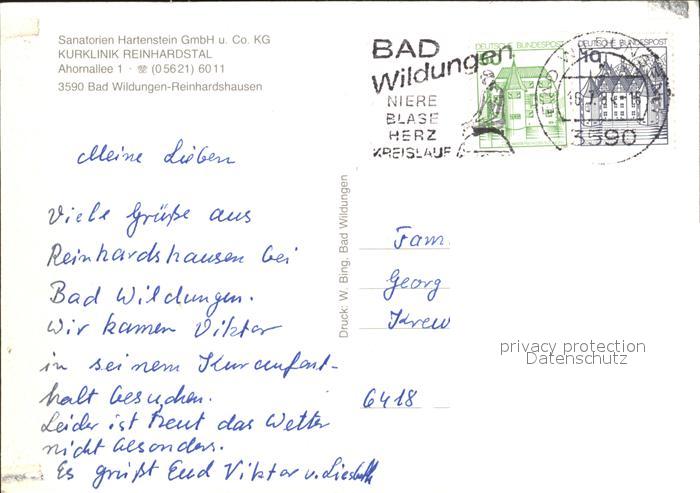 Sanatorien Hartenstein GmbH u. Co. KG
KURKLINIK REINHARDSTAL
Ahornallee 1 · ☏ (05621) 6011
3590 Bad Wildungen-Reinhardshausen
BAD
Wildungen
NIERE
BLASE
HERZ
KREISLAUF
DEUTSCHE BUNDESPOST
DEUTSCHE BUNDESPOST
10
3590
Meine Lieben
Viele Grüße aus
Reinhardshausen bei
Bad Wildungen.
Wir kamen Viktor
in seinem Kuraufent-
halt besuchen.
Leider ist heut das Wetter
nicht besonders.
Es grüßt Eud Viktor u. Liesbeth
Druck: W. Bing, Bad Wildungen
Fam.
Georg
Krew
6418
privacy protection
Datenschutz